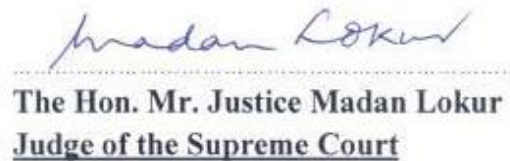 Madan Lokur
The Hon. Mr. Justice Madan Lokur
Judge of the Supreme Court